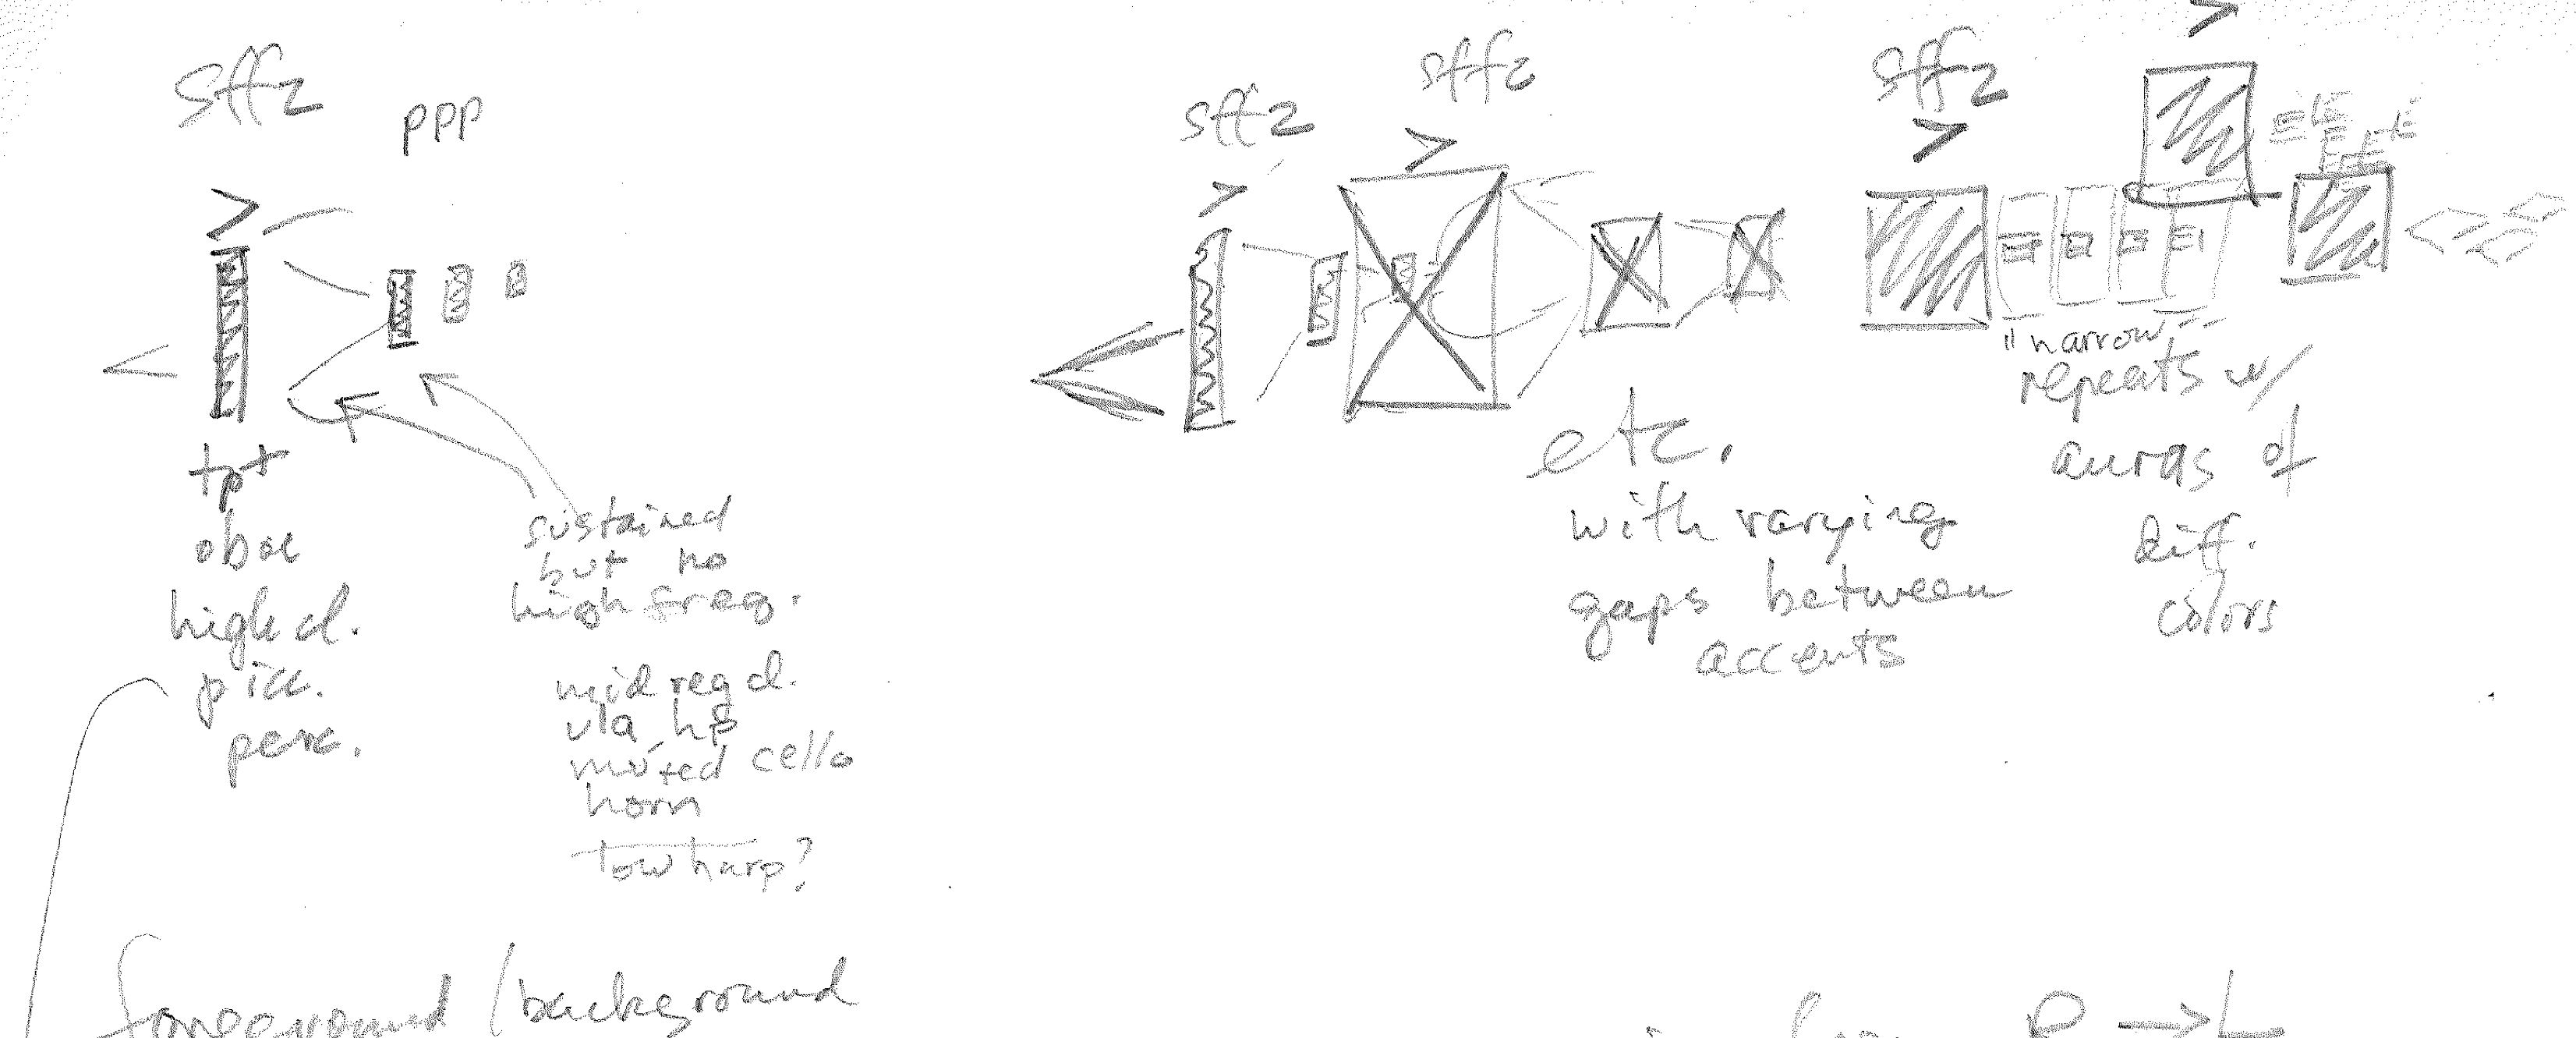 sffz
ppp
tpt
oboe
high cl.
picc.
perc.
sustained
but no
high freq.
mid reg cl.
vla, hp
muted cello
horn
low harp?
foreground / background
sffz
sffz
etc.
with varying
gaps between
accents
sffz
"narrow"
repeats w/
auras of
diff.
colors
R → L